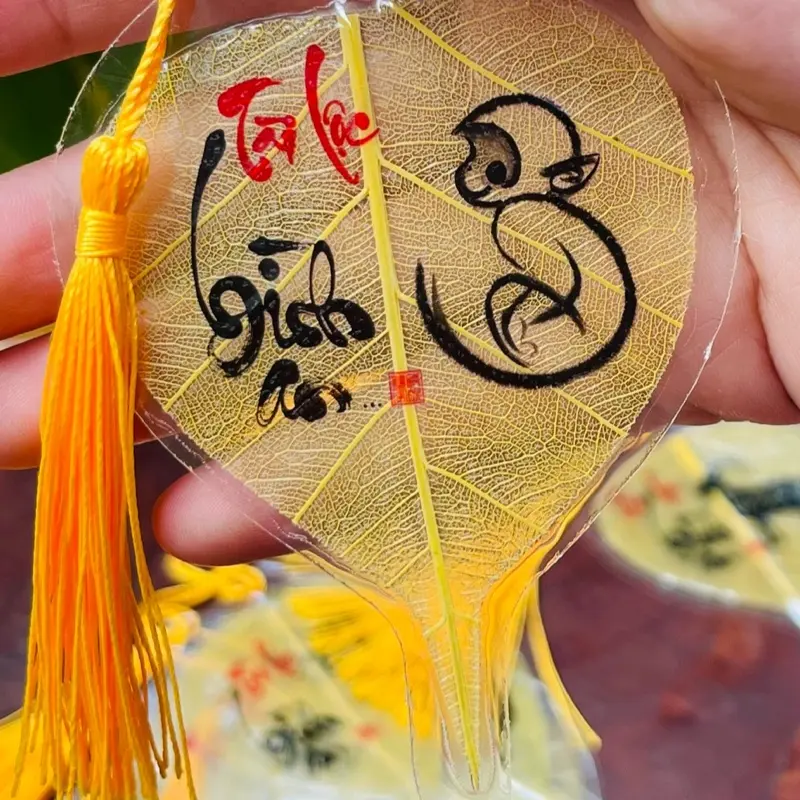 Tài lộc
Bình
an...